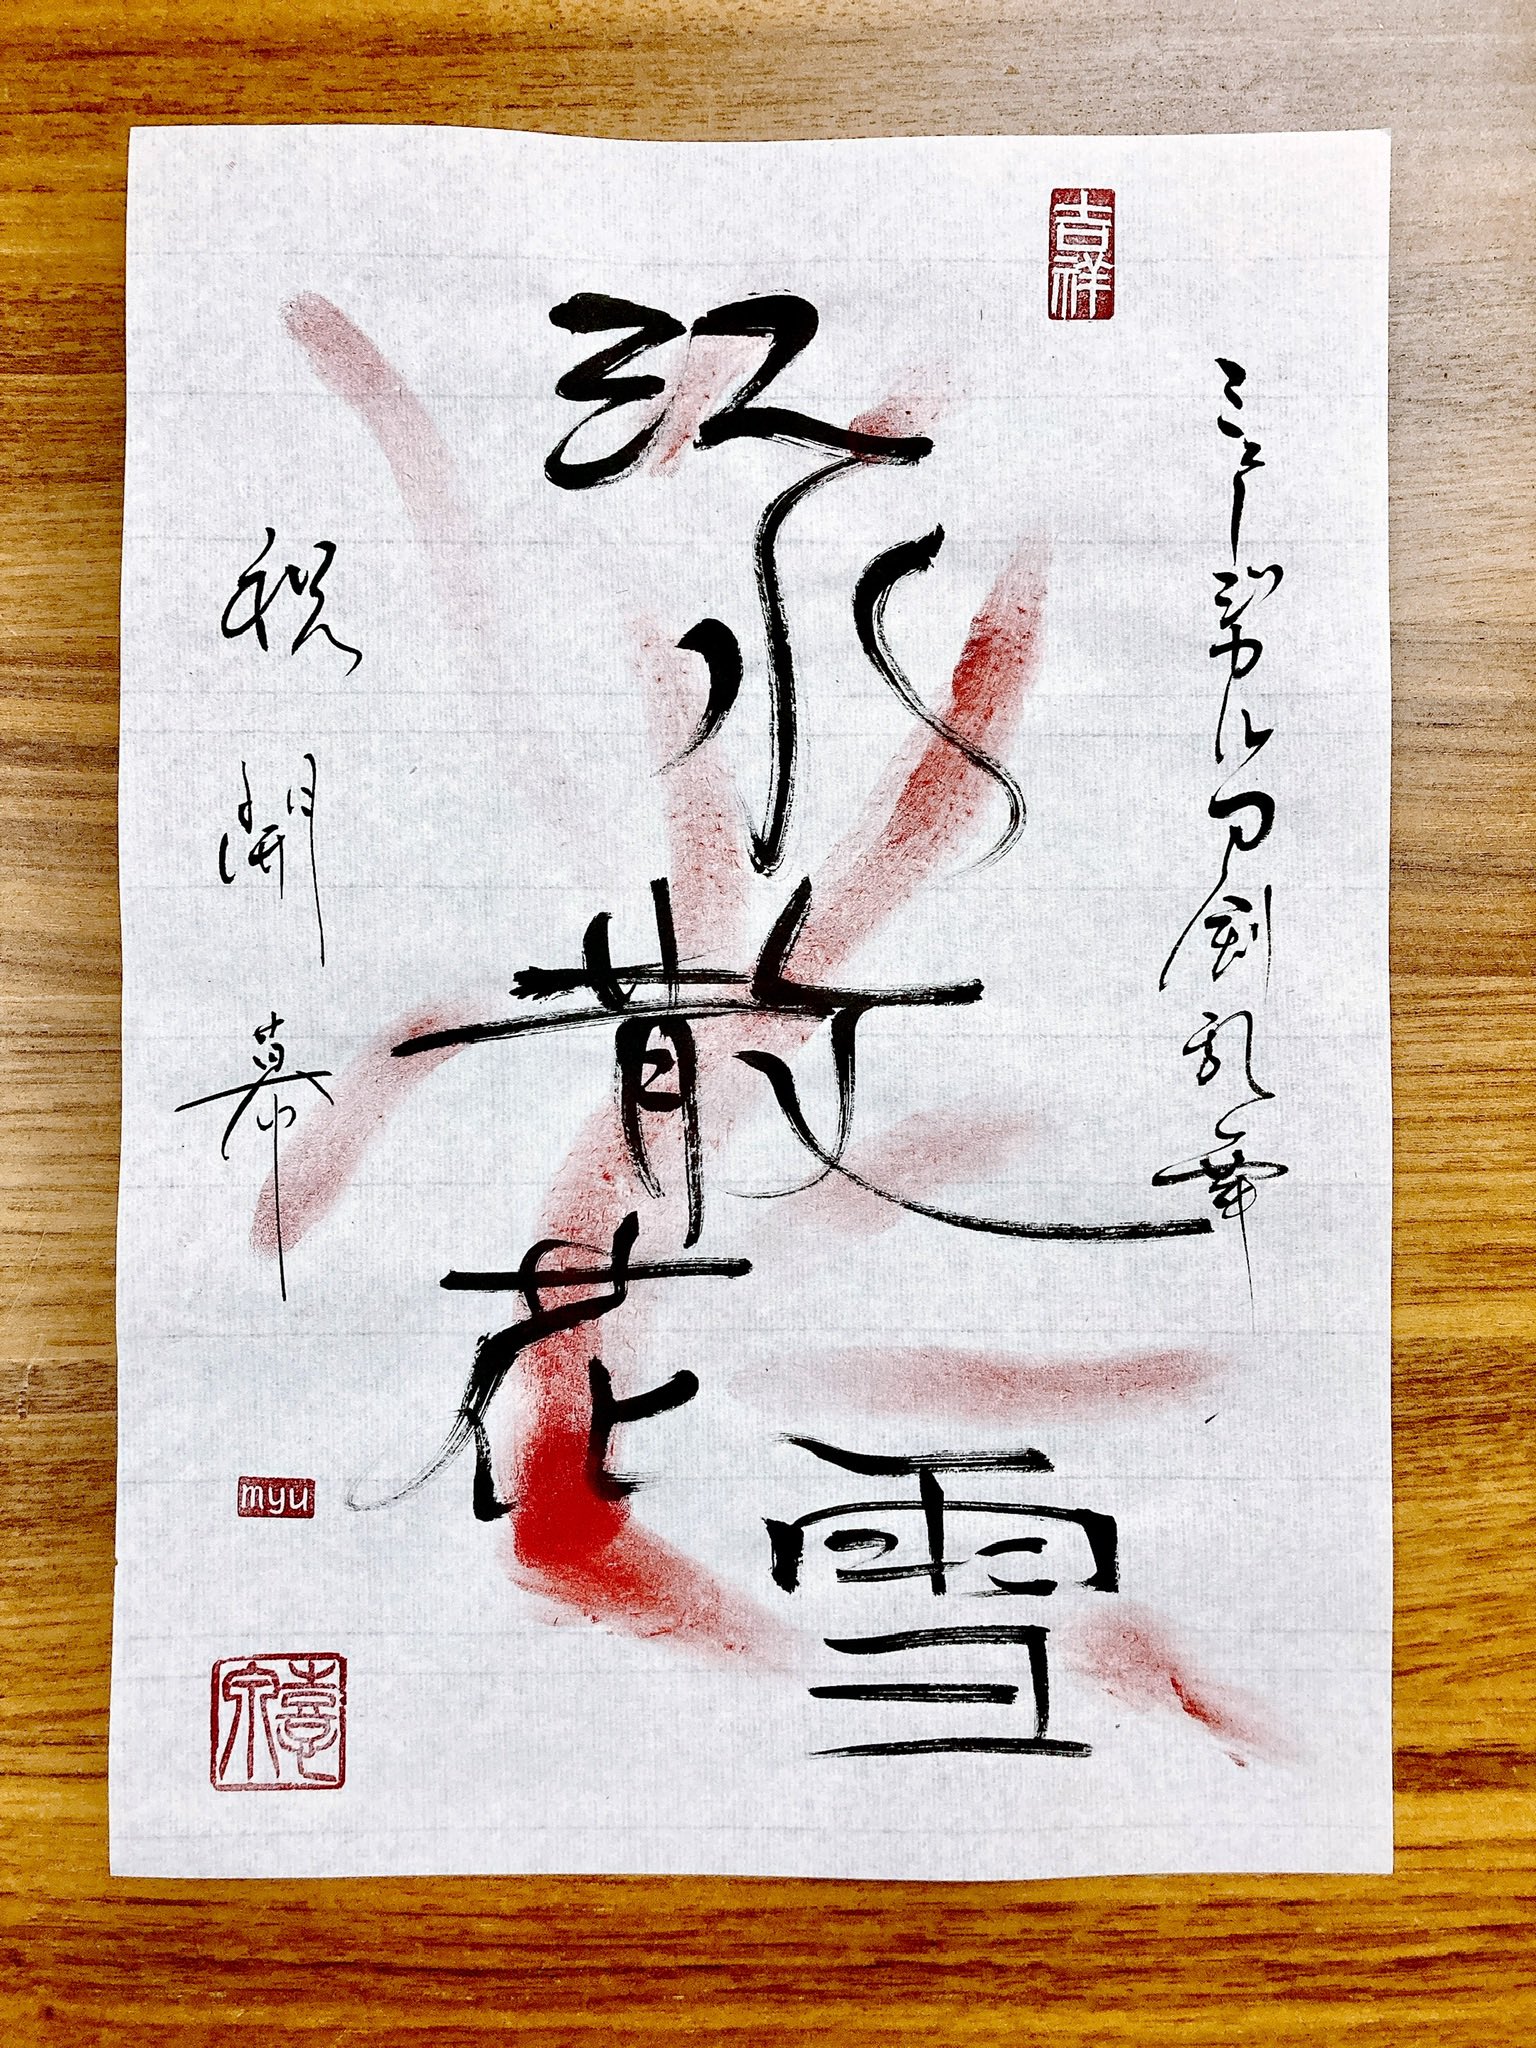 吉祥
ミュージカル刀剣乱舞
江水散花雪
祝開幕
myu